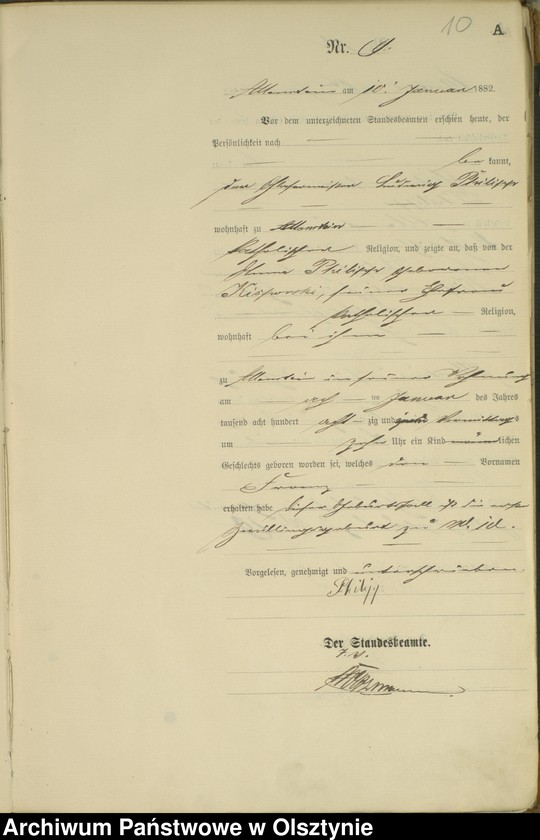 10 A
Nr. 9.
Allenstein am 10. Januar 1882.
Vor dem unterzeichneten Standesbeamten erschien heute, der
Persönlichkeit nach
be kannt,
der Philipp
wohnhaft zu Allenstein
katholischer Religion, und zeigte an, daß von der
Anna Philipp geborenen
seiner Ehefrau
katholischer Religion,
wohnhaft bei ihm
zu Allenstein in seiner Wohnung
am ten Januar des Jahres
tausend acht hundert acht zig und zwei Vormittags
um zehn Uhr ein Kind männlichen
Geschlechts geboren worden sei, welches den Vornamen
Franz
erhalten habe. Dieser Geburtsfall ist die erste
Zwillingsgeburt zu No. 10.
Vorgelesen, genehmigt und unterschrieben.
Philipp
Der Standesbeamte.
Archiwum Państwowe w Olsztynie